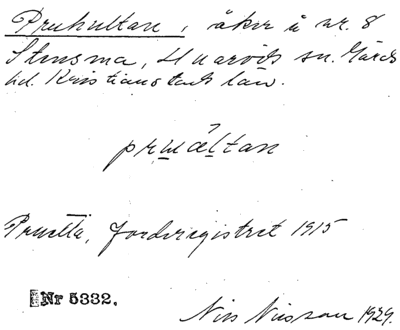 Pruhultan, åker å nr. 8
Stensma, Hvaröds sn. Gärds
hd. Kristianstads län.
Jordregistret 1915
Nr 5332.
Nils Nilsson 1929.